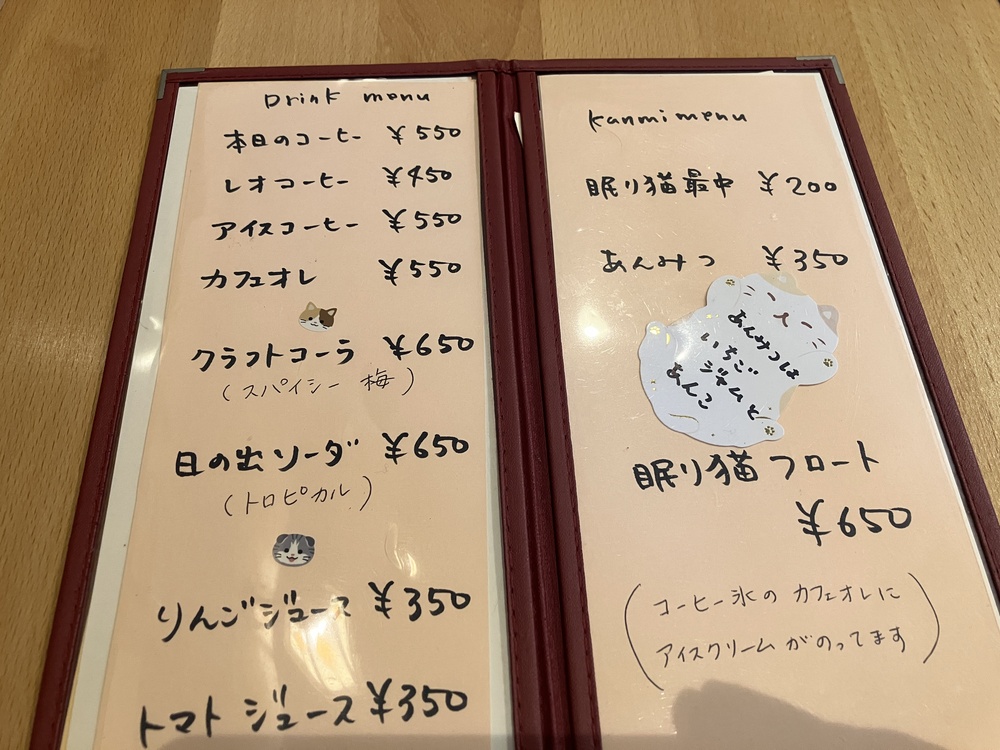 Drink menu
本日のコーヒー ¥550
レオコーヒー ¥450
アイスコーヒー ¥550
カフェオレ ¥550
クラフトコーラ ¥650
(スパイシー 梅)
日の出ソーダ ¥650
(トロピカル)
りんごジュース ¥350
トマトジュース ¥350
kanmi menu
眠り猫最中 ¥200
あんみつ ¥350
あんみつは
いちご
ジャムと
あんこ
眠り猫フロート
¥650
(コーヒー氷のカフェオレに
アイスクリームがのってます)